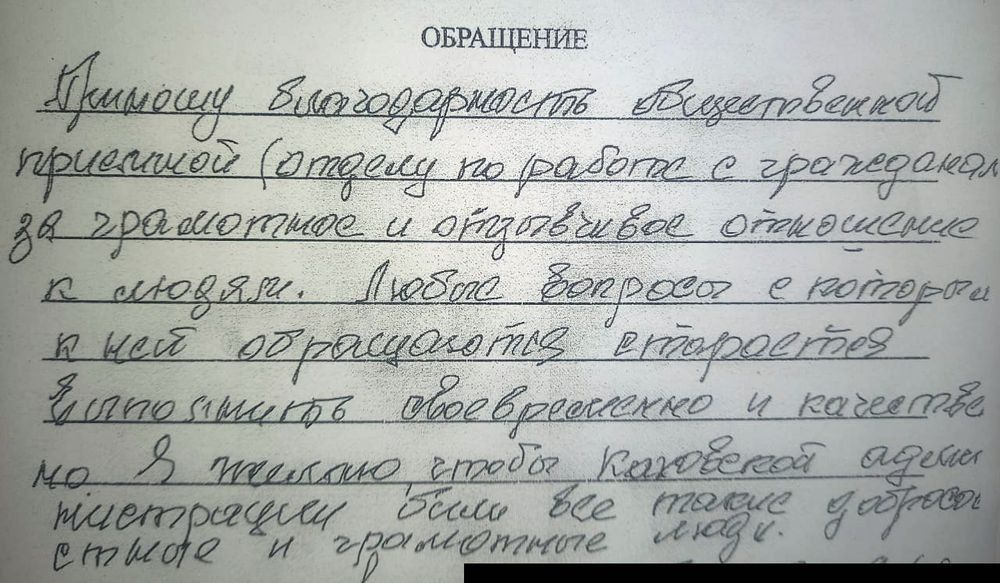 ОБРАЩЕНИЕ
Приношу благодарность общественной
приемной (отделу по работе с гражданам
за грамотное и отзывчивое отношение
к людям. Любые вопросы с которым
к ней обращаются старается
выполнить своевременно и качестве
но. Я желаю, чтобы Каховской адми
нистрации были все такие добросо
стные и грамотные люди.